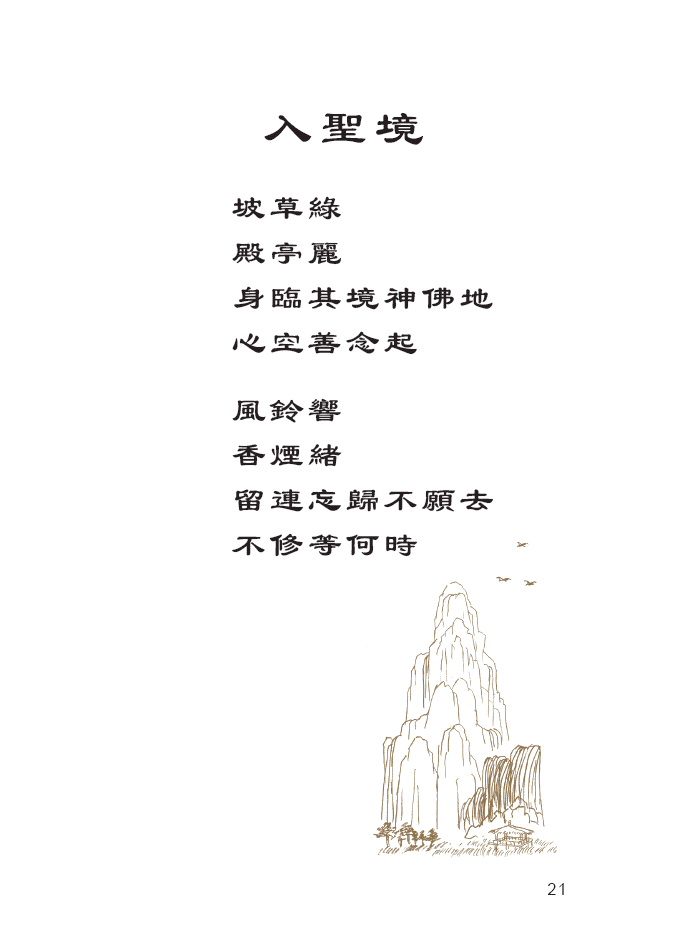 入聖境
坡草綠
殿亭麗
身臨其境神佛地
心空善念起
風鈴響
香煙緒
留連忘歸不願去
不修等何時
21